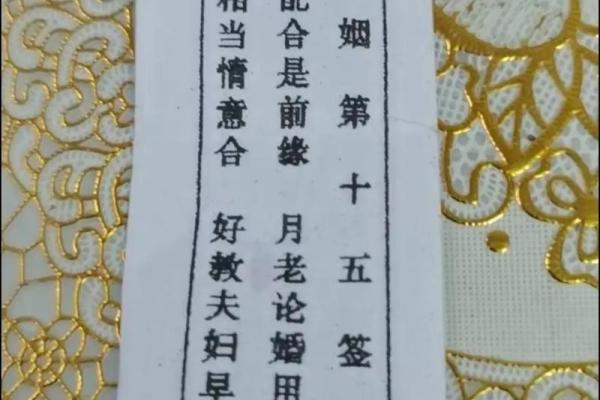 姻第十五签
配合是前缘 月老论婚用
相当情意合 好教夫妇早